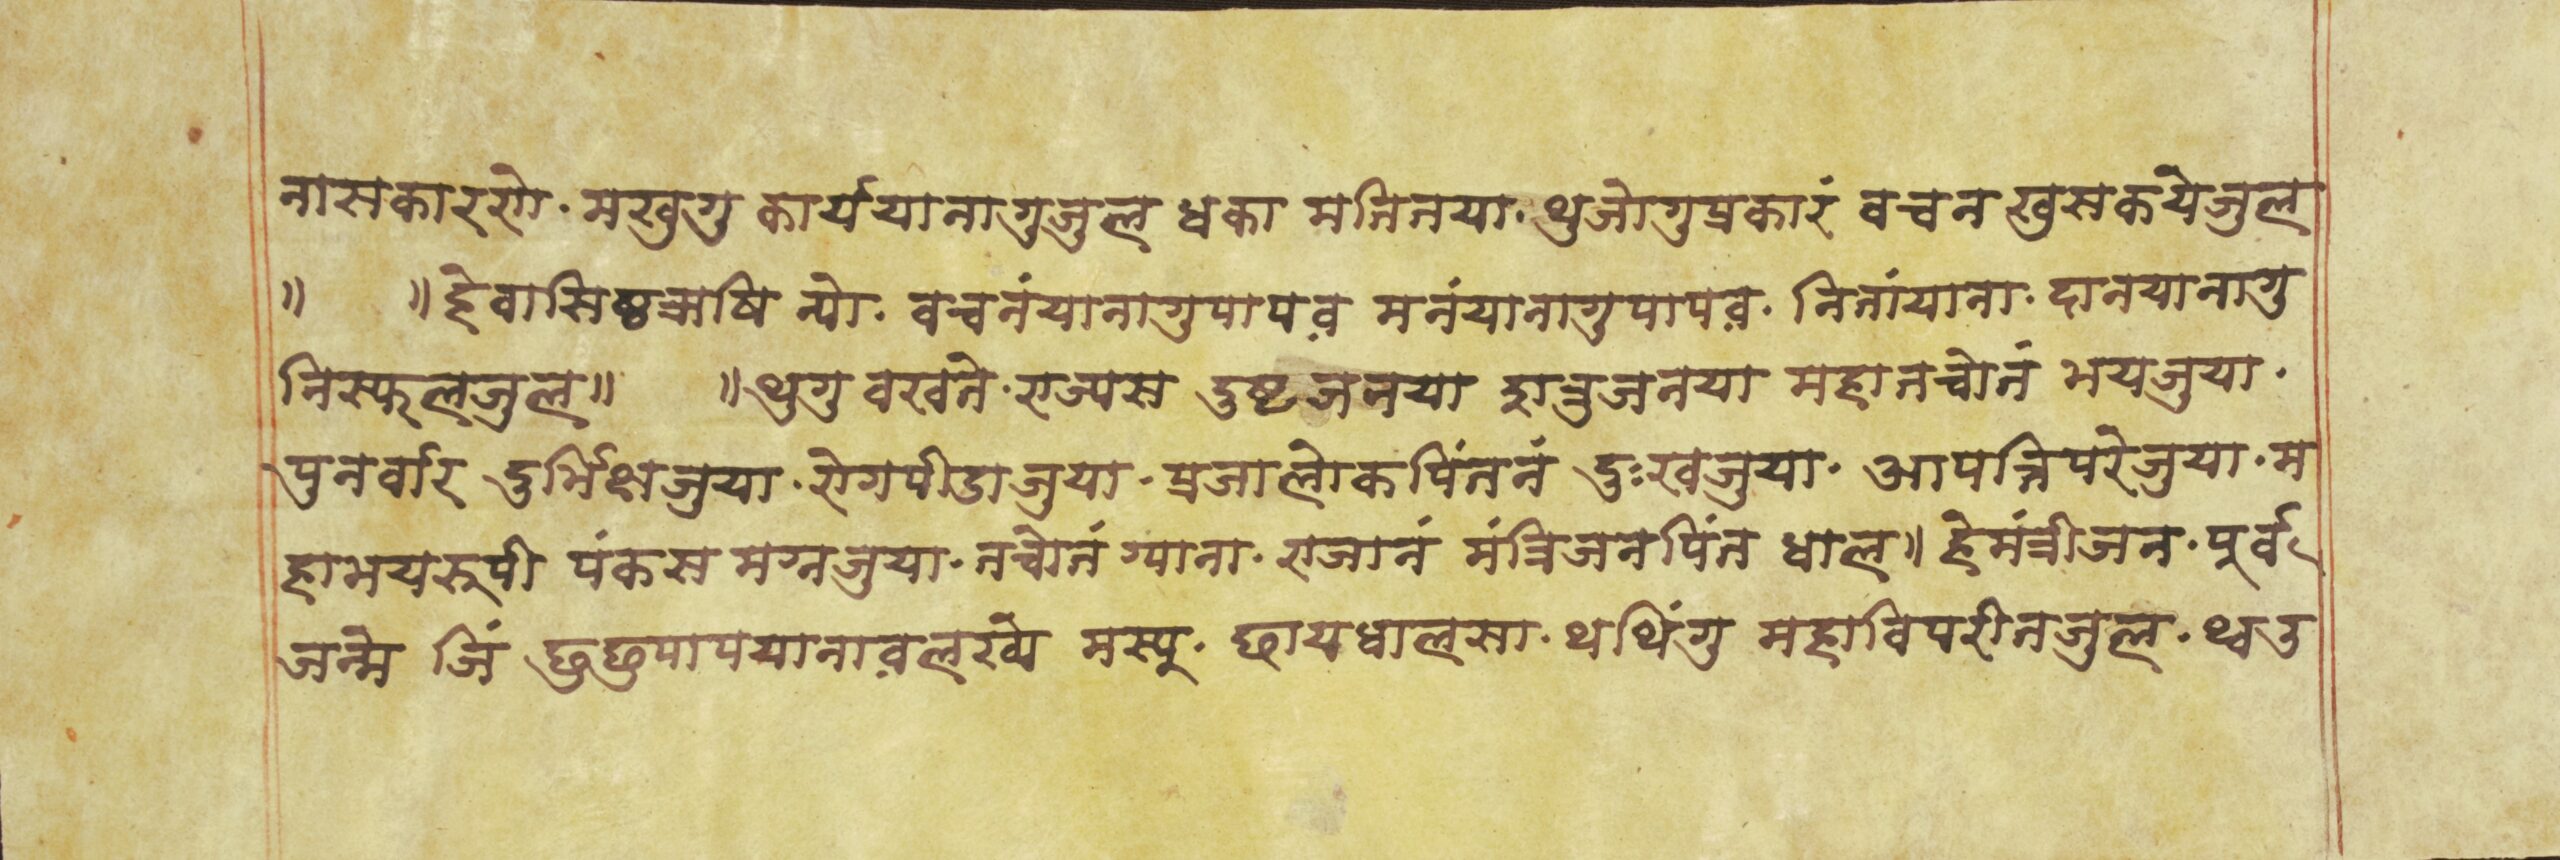 नासकाररगे· मखुगु कार्ययानागुजुल धका मतिनया· थुजोगुप्रकारं वचन खुसकयेजुल
॥ ॥ हेवासिष्ठऋषि न्यो· वचनंयानागुपापव़ मनंयानागुपापव़· नितांयाना· दानयानागु
निस्फलजुल॥ ॥ थुगु वखते· राज्यस दुष्टजनया शत्रुजनया महानचोनं भयजुया·
पुनर्वार दुर्भिक्षजुया· रोगपीडाजुया· प्रजालोकपिंतनं दुःखजुया· आपत्तिपरेजुया· म
हाभयरूपी पंकस मग्नजुया· नचोनं ग्याना· राजानं मंत्रिजनपिंत धाल॥ हेमंत्रीजन· पूर्व
जन्मे जिं छुछुपापयानाव़लखे मस्यू· छायधालसा· थथिंगु महाविपरीतजुल· थ्वउ